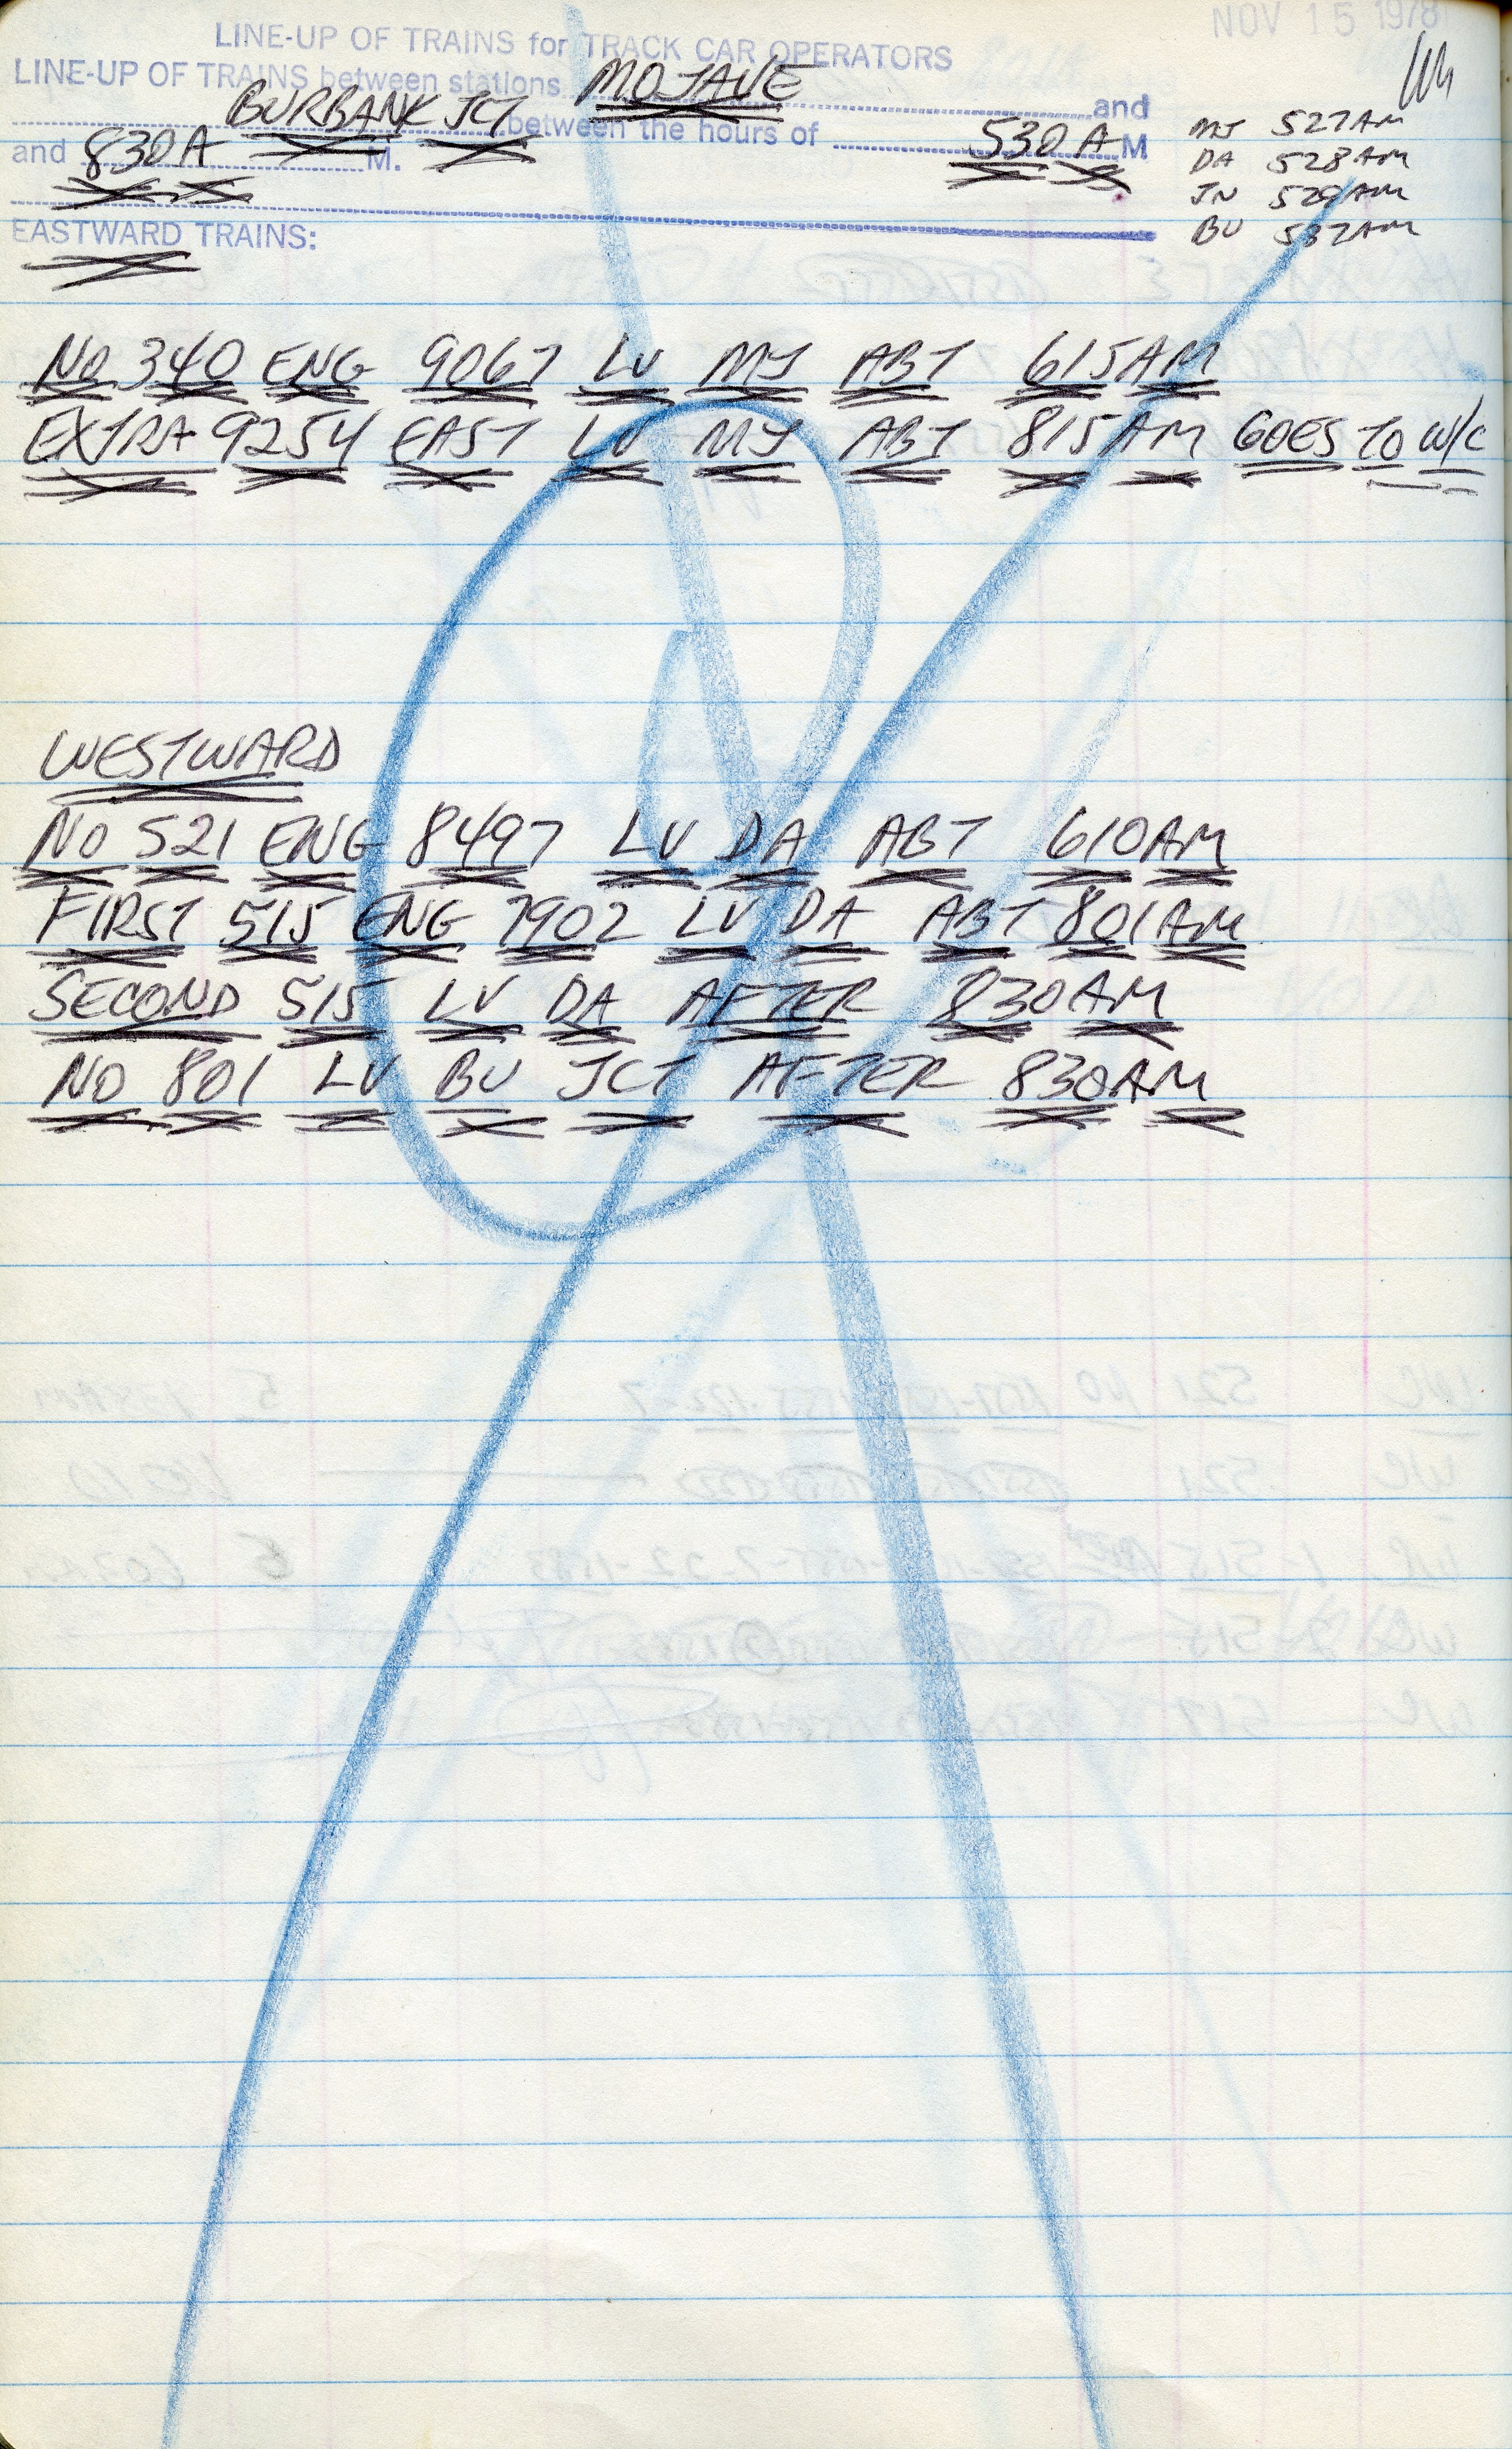 NOV 15 1978
LINE-UP OF TRAINS for TRACK CAR OPERATORS
LINE-UP OF TRAINS between stations MOJAVE and
BURBANK JCT between the hours of 530 A M
and 830 A M.
MJ 527AM
DA 528AM
JN 529AM
BU 532AM
EASTWARD TRAINS:
NO 340 ENG 9067 LV MJ ABT 615AM
EXTRA 9254 EAST LV MJ ABT 815AM GOES TO W/C
WESTWARD
NO 521 ENG 8497 LV DA ABT 610AM
FIRST 515 ENG 7902 LV DA ABT 801AM
SECOND 515 LV DA AFTER 830AM
NO 801 LV BU JCT AFTER 830AM